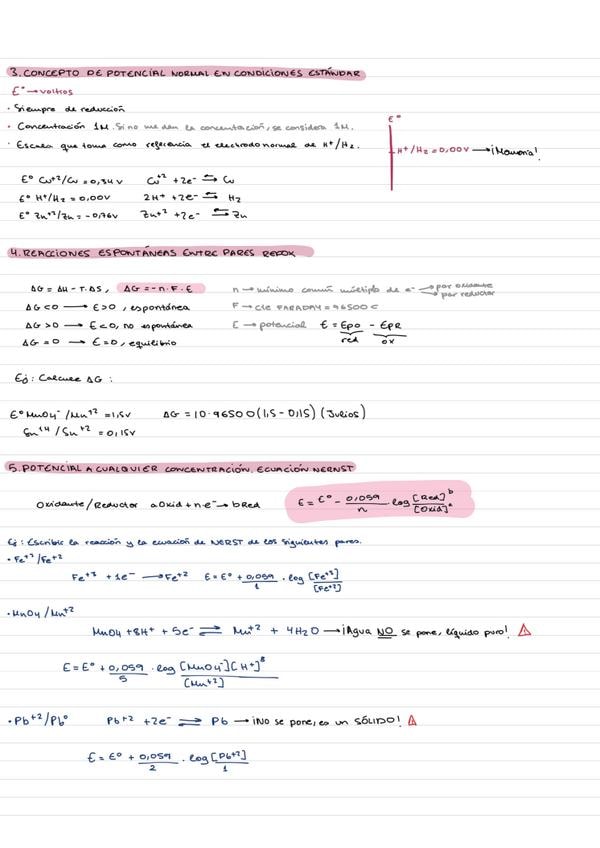 3. CONCEPTO DE POTENCIAL NORMAL EN CONDICIONES ESTÁNDAR
E° → voltios
· Siempre de reducción
· Concentración 1M. Si no me dan la concentración, se considera 1M.
· Escala que toma como referencia el electrodo normal de H⁺/H₂.
E°
H⁺/H₂ = 0,00V → ¡Memoria!
E° Cu⁺²/Cu = 0,34V Cu⁺² + 2e⁻ ⇆ Cu
E° H⁺/H₂ = 0,00V 2H⁺ + 2e⁻ ⇆ H₂
E° Zn⁺²/Zn = -0,76V Zn⁺² + 2e⁻ ⇆ Zn
4. REACCIONES ESPONTÁNEAS ENTRE PARES REDOX
ΔG = ΔH - T·ΔS, ΔG = -n·F·E n → mínimo común múltiplo de e⁻ → por oxidante → por reductor
ΔG < 0 → E > 0, espontánea F → cte FARADAY = 96500 C
ΔG > 0 → E < 0, no espontánea E → potencial E = EPO - EPR
red ox
ΔG = 0 → E = 0, equilibrio
Ej: Calcule ΔG :
E° MnO₄⁻/Mn⁺² = 1,5V ΔG = 10·96500 (1,5 - 0,15) (Julios)
Sn⁺⁴/Sn⁺² = 0,15V
5. POTENCIAL A CUALQUIER CONCENTRACIÓN. ECUACIÓN NERNST
Oxidante/Reductor aOxid + ne⁻ → bRed E = E° - 0,059/n · log [Red]ᵇ/[Oxid]ᵃ
Ej: Escribir la reacción y la ecuación de NERST de los siguientes pares.
· Fe⁺³/Fe⁺²
Fe⁺³ + 1e⁻ → Fe⁺² E = E° + 0,059/1 · log [Fe⁺³]/[Fe⁺²]
· MnO₄/Mn⁺²
MnO₄ + 8H⁺ + 5e⁻ ⇄ Mn⁺² + 4H₂O → ¡Agua NO se pone, líquido puro! ⚠
E = E° + 0,059/5 · log [MnO₄⁻][H⁺]⁸/[Mn⁺²]
· Pb⁺²/Pb° Pb⁺² + 2e⁻ ⇄ Pb → ¡No se pone, es un SÓLIDO! ⚠
E = E° + 0,059/2 · log [Pb⁺²]/1